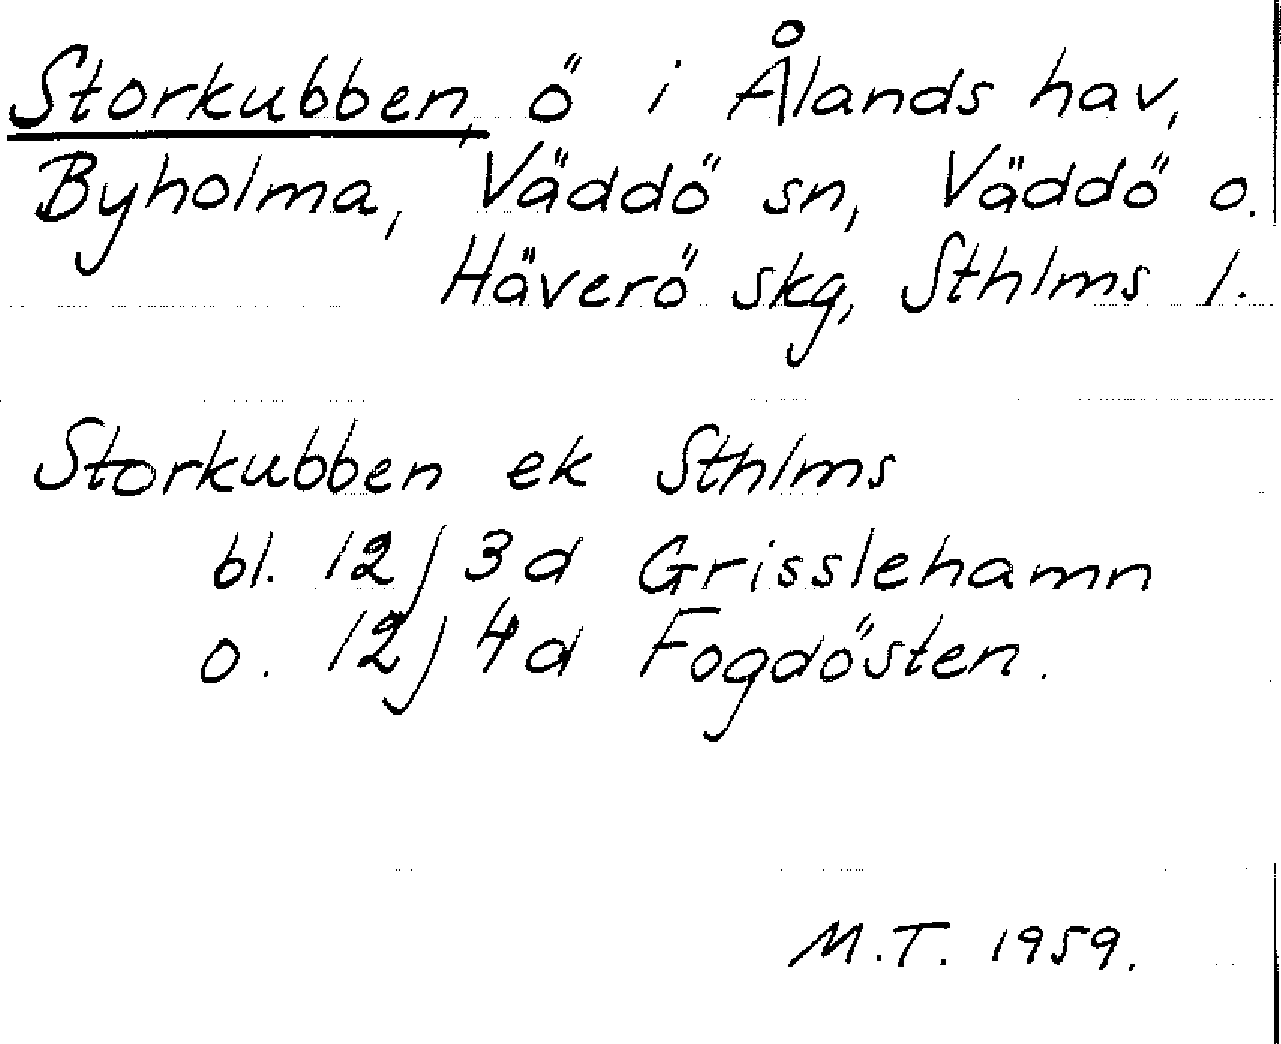 Storkubben, ö i Ålands hav,
Byholma, Väddö sn, Väddö o.
Häverö skg, Sthlms l.
Storkubben ek Sthlms
bl. 12j 3d Grisslehamn
o. 12j 4d Fogdösten.
M.T. 1959.